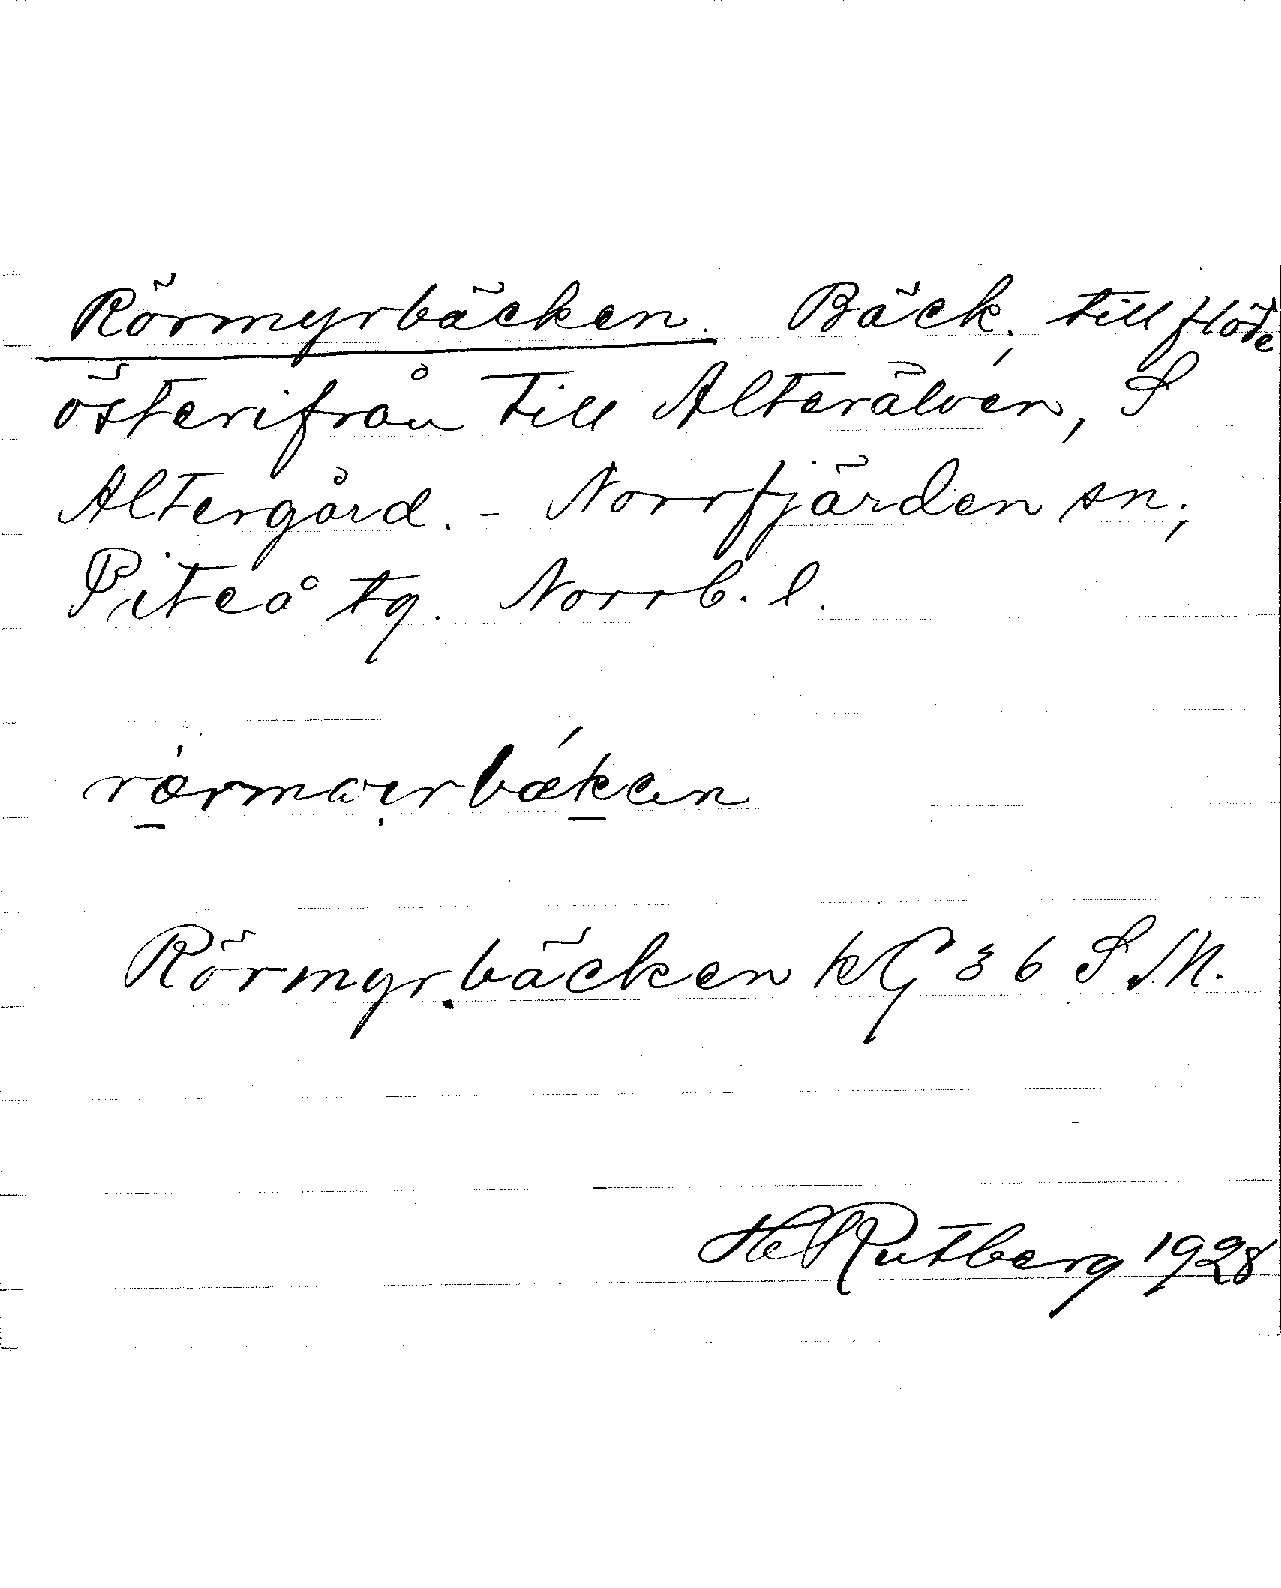 Rörmyrbäcken. Bäck, tillflöde
österifrån till Alterälven, S
Altergård. - Norrfjärden sn,
Piteå tg. Norrb. l.
Rörmyrbäcken kG 36 S M.
H Rutberg 1928